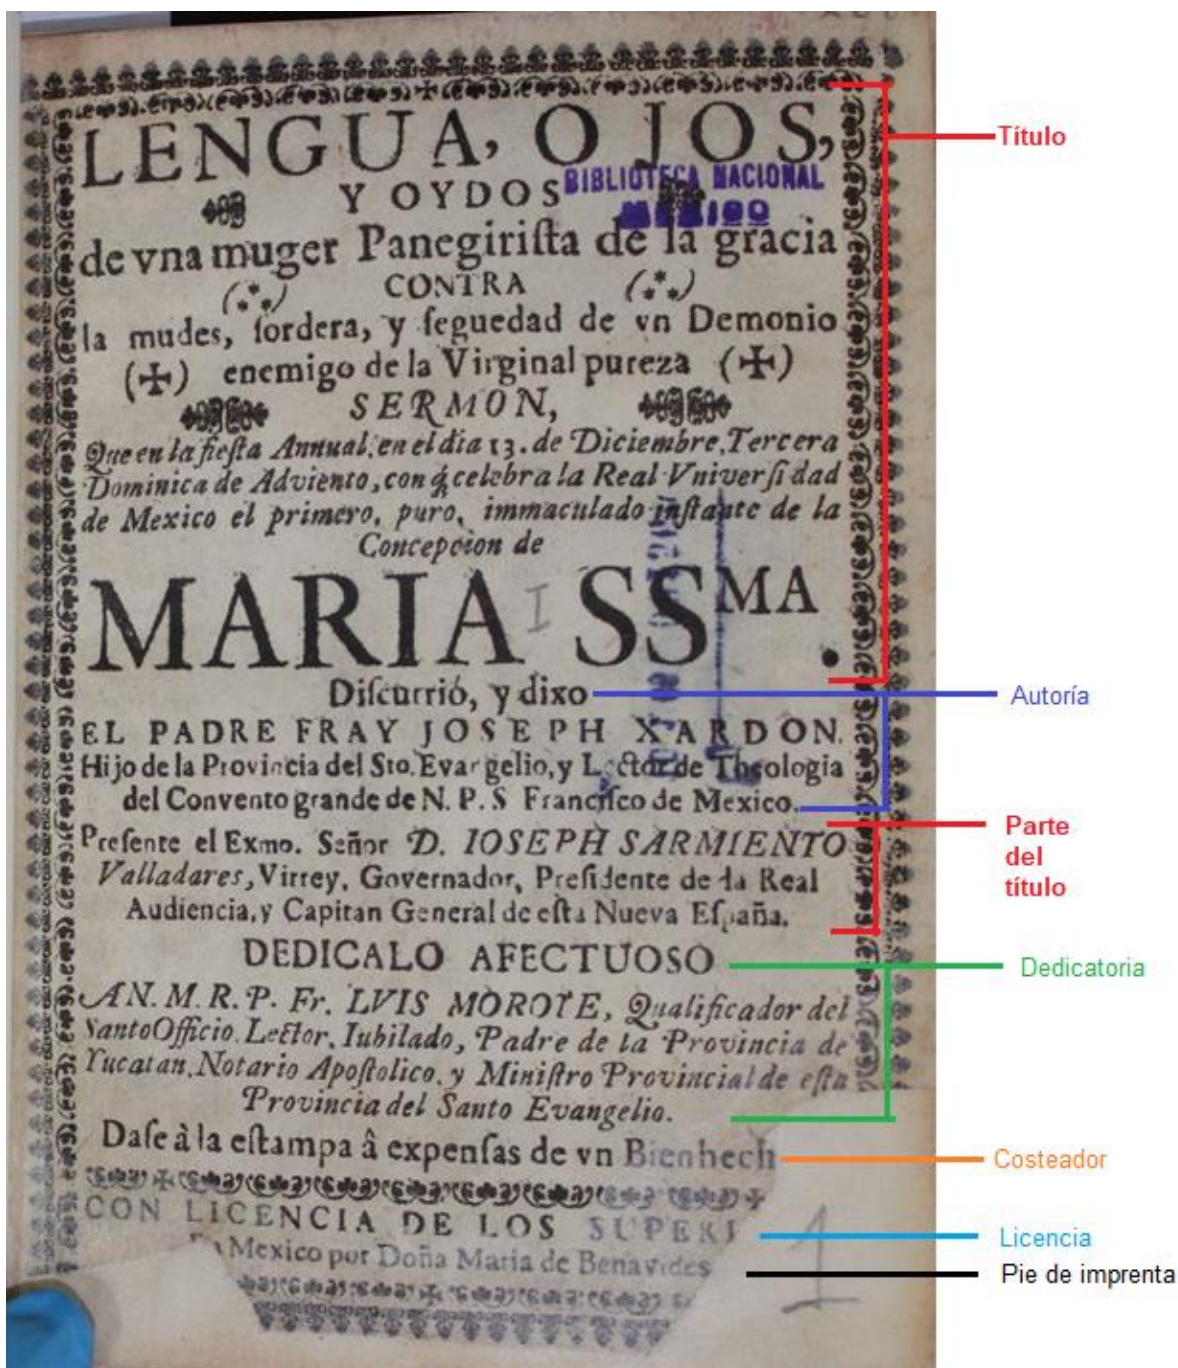 LENGUA, OJOS,
Título
Y OYDOS
BIBLIOTECA NACIONAL
MEXICO
de vna muger Panegiriſta de la gracia
CONTRA
la mudes, ſordera, y ſeguedad de vn Demonio
(✠) enemigo de la Virginal pureza (✠)
SERMON,
Que en la fieſta Annual, en el dia 13. de Diciembre, Tercera
Dominica de Adviento, con q̃ celebra la Real Vniverſidad
de Mexico el primero, puro, immaculado inſtante de la
Concepcion de
MARIA SSMA.
I
Diſcurrió, y dixo
Autoría
EL PADRE FRAY JOSEPH XARDON.
Hijo de la Provincia del Sto. Evangelio, y Lector de Theologia
del Convento grande de N. P. S Franciſco de Mexico.
Preſente el Exmo. Señor D. IOSEPH SARMIENTO
Parte
del
título
Valladares, Virrey, Governador, Preſidente de la Real
Audiencia, y Capitan General de eſta Nueva Eſpaña.
DEDICALO AFECTUOSO
Dedicatoria
A N. M. R. P. Fr. LVIS MOROTE, Qualificador del
Santo Officio. Lector, Iubilado, Padre de la Provincia de
Yucatan, Notario Apoſtolico, y Miniſtro Provincial de eſta
Provincia del Santo Evangelio.
Daſe à la eſtampa â expenſas de vn Bienhech
Costeador
CON LICENCIA DE LOS SUPERI
Licencia
En Mexico por Doña Maria de Benavides
Pie de imprenta
1